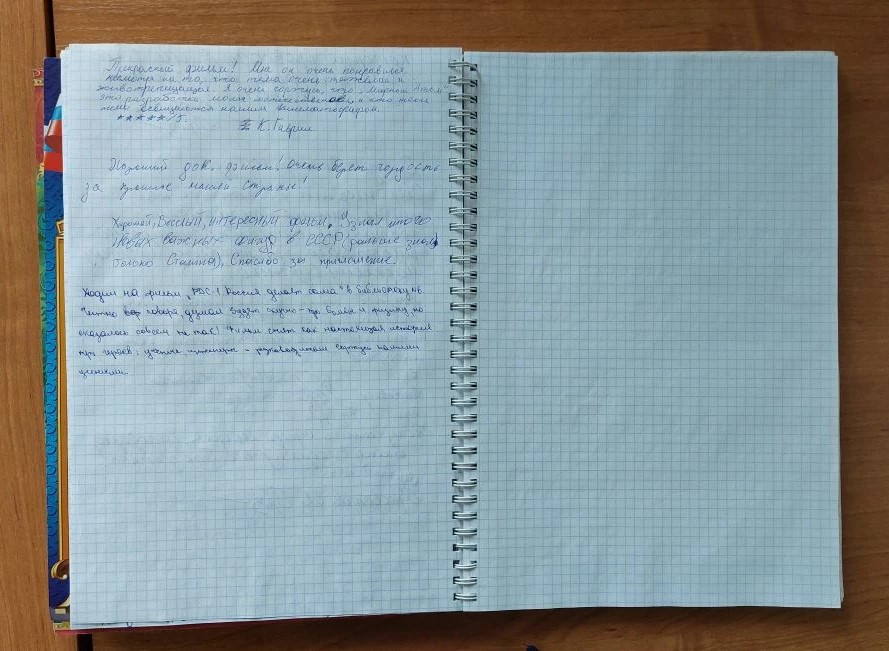 Прекрасный фильм! Мне он очень понравился
несмотря на то, что тема очень тяжелая и
Я очень горжусь, что "Мирный Атом"
это разработка моих соотечественников, и что тема
освещается нашим кинематографом.
★★★★★/5.
К. Гаврил
Хороший док. фильм! Очень берет гордость
за прошлое нашей страны!
Хороший, Веселый, интересный фильм. Узнал много
Новых важных в СССР (раньше знал
только Сталина), Спасибо за приглашение.
Ходил на фильм "РДС-1 Россия делает сама" в библиотеку.
Честно говоря думал будет скучно - про бомбы и физику, но
оказалось совсем не так! Фильм снят как настоящая история
про героев: учёные, инженеры - горжусь нашими
учеными.